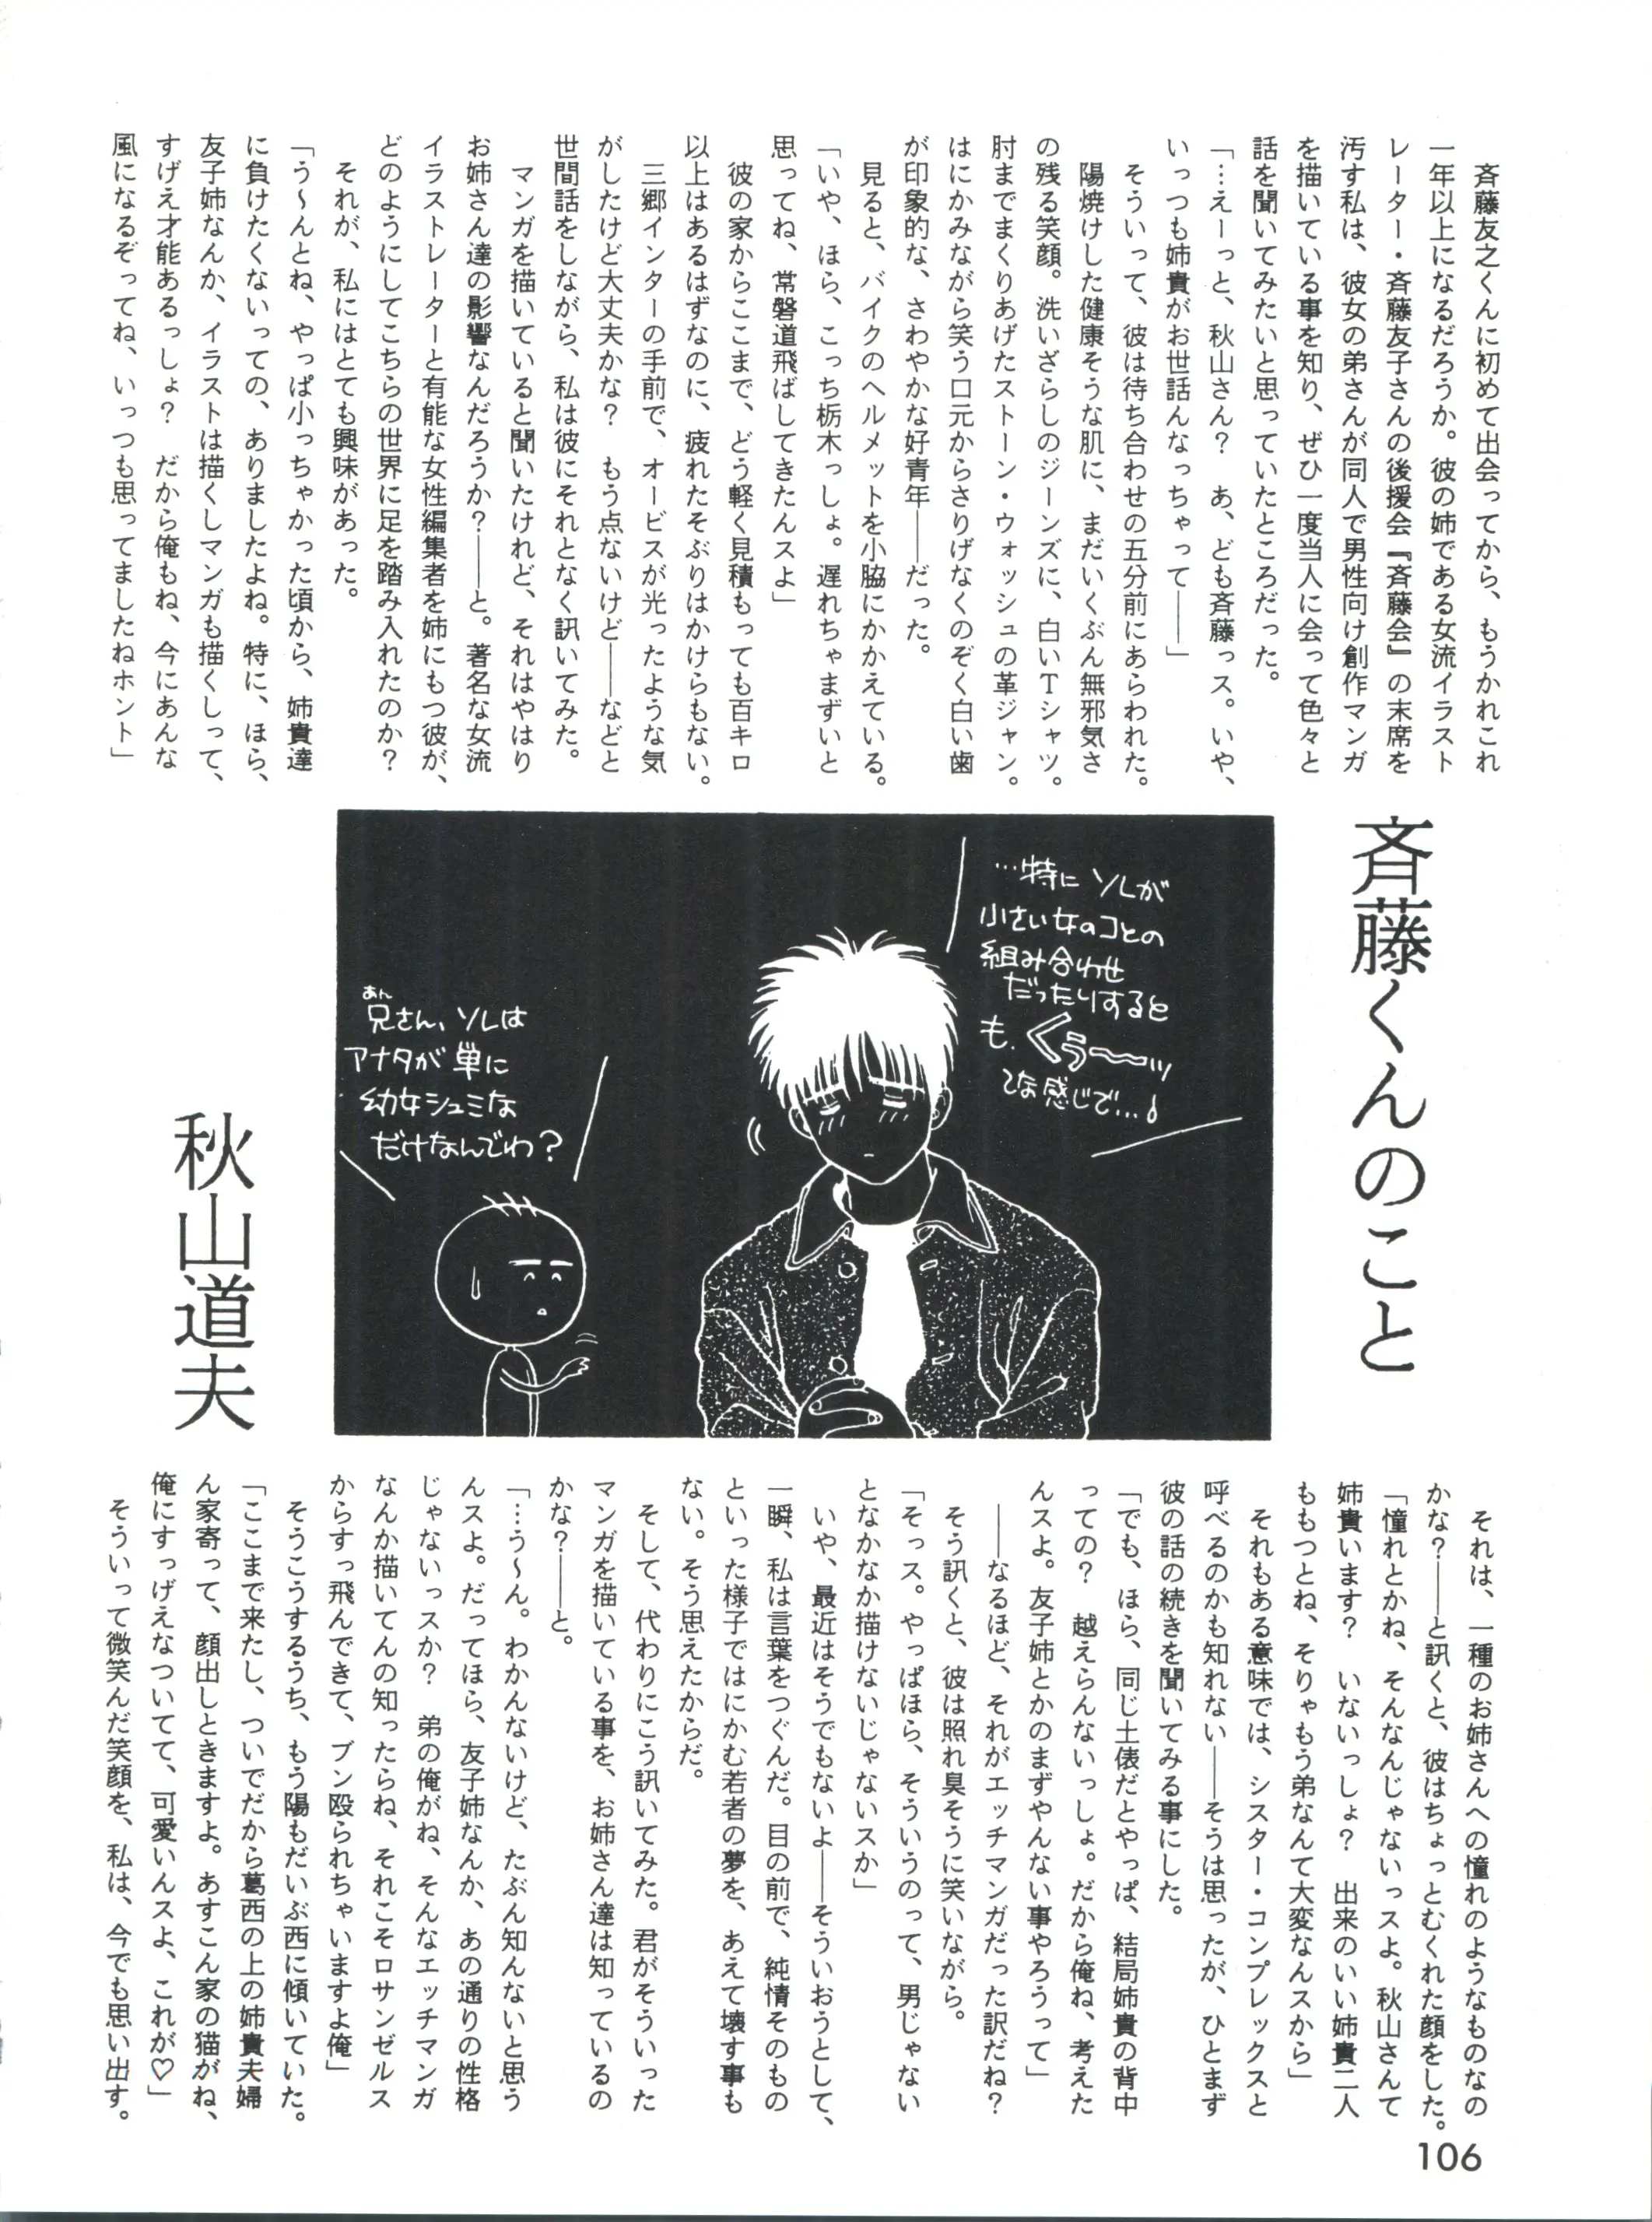 斉藤くんのこと
秋山道夫
斉藤友之くんに初めて出会ってから、もうかれこれ
一年以上になるだろうか。彼の姉である女流イラスト
レーター・斉藤友子さんの後援会『斉藤会』の末席を
汚す私は、彼女の弟さんが同人で男性向け創作マンガ
を描いている事を知り、ぜひ一度当人に会って色々と
話を聞いてみたいと思っていたところだった。
「…えーっと、秋山さん？　あ、ども斉藤っス。いや、
いっつも姉貴がお世話んなっちゃって――」
そういって、彼は待ち合わせの五分前にあらわれた。
陽焼けした健康そうな肌に、まだいくぶん無邪気さ
の残る笑顔。洗いざらしのジーンズに、白いTシャツ。
肘までまくりあげたストーン・ウォッシュの革ジャン。
はにかみながら笑う口元からさりげなくのぞく白い歯
が印象的な、さわやかな好青年――だった。
見ると、バイクのヘルメットを小脇にかかえている。
「いや、ほら、こっち栃木っしょ。遅れちゃまずいと
思ってね、常磐道飛ばしてきたんスよ」
彼の家からここまで、どう軽く見積もっても百キロ
以上はあるはずなのに、疲れたそぶりはかけらもない。
三郷インターの手前で、オービスが光ったような気
がしたけど大丈夫かな？　もう点ないけど――などと
世間話をしながら、私は彼にそれとなく訊いてみた。
マンガを描いていると聞いたけれど、それはやはり
お姉さん達の影響なんだろうか？――と。著名な女流
イラストレーターと有能な女性編集者を姉にもつ彼が、
どのようにしてこちらの世界に足を踏み入れたのか？
それが、私にはとても興味があった。
「う～んとね、やっぱ小っちゃかった頃から、姉貴達
に負けたくないっての、ありましたよね。特に、ほら、
友子姉なんか、イラストは描くしマンガも描くしって、
すげえ才能あるっしょ？　だから俺もね、今にあんな
風になるぞってね、いっつも思ってましたねホント」
…特にソレが
小さい女のコとの
組み合わせ
だったりすると
も、くぅ～～ッ
てな感じで…。
あん
兄さん、ソレは
アナタが単に
幼女シュミな
だけなんでわ？
それは、一種のお姉さんへの憧れのようなものなの
かな？――と訊くと、彼はちょっとむくれた顔をした。
「憧れとかね、そんなんじゃないっスよ。秋山さんて
姉貴います？　いないっしょ？　出来のいい姉貴二人
ももつとね、そりゃもう弟なんて大変なんスから」
それもある意味では、シスター・コンプレックスと
呼べるのかも知れない――そうは思ったが、ひとまず
彼の話の続きを聞いてみる事にした。
「でも、ほら、同じ土俵だとやっぱ、結局姉貴の背中
っての？　越えらんないっしょ。だから俺ね、考えた
んスよ。友子姉とかのまずやんない事やろうって」
――なるほど、それがエッチマンガだった訳だね？
そう訊くと、彼は照れ臭そうに笑いながら。
「そっス。やっぱほら、そういうのって、男じゃない
となかなか描けないじゃないスか」
いや、最近はそうでもないよ――そういおうとして、
一瞬、私は言葉をつぐんだ。目の前で、純情そのもの
といった様子ではにかむ若者の夢を、あえて壊す事も
ない。そう思えたからだ。
そして、代わりにこう訊いてみた。君がそういった
マンガを描いている事を、お姉さん達は知っているの
かな？――と。
「…う～ん。わかんないけど、たぶん知んないと思う
んスよ。だってほら、友子姉なんか、あの通りの性格
じゃないっスか？　弟の俺がね、そんなエッチマンガ
なんか描いてんの知ったらね、それこそロサンゼルス
からすっ飛んできて、ブン殴られちゃいますよ俺」
そうこうするうち、もう陽もだいぶ西に傾いていた。
「ここまで来たし、ついでだから葛西の上の姉貴夫婦
ん家寄って、顔出しときますよ。あすこん家の猫がね、
俺にすっげえなついてて、可愛いんスよ、これが♡」
そういって微笑んだ笑顔を、私は、今でも思い出す。
106